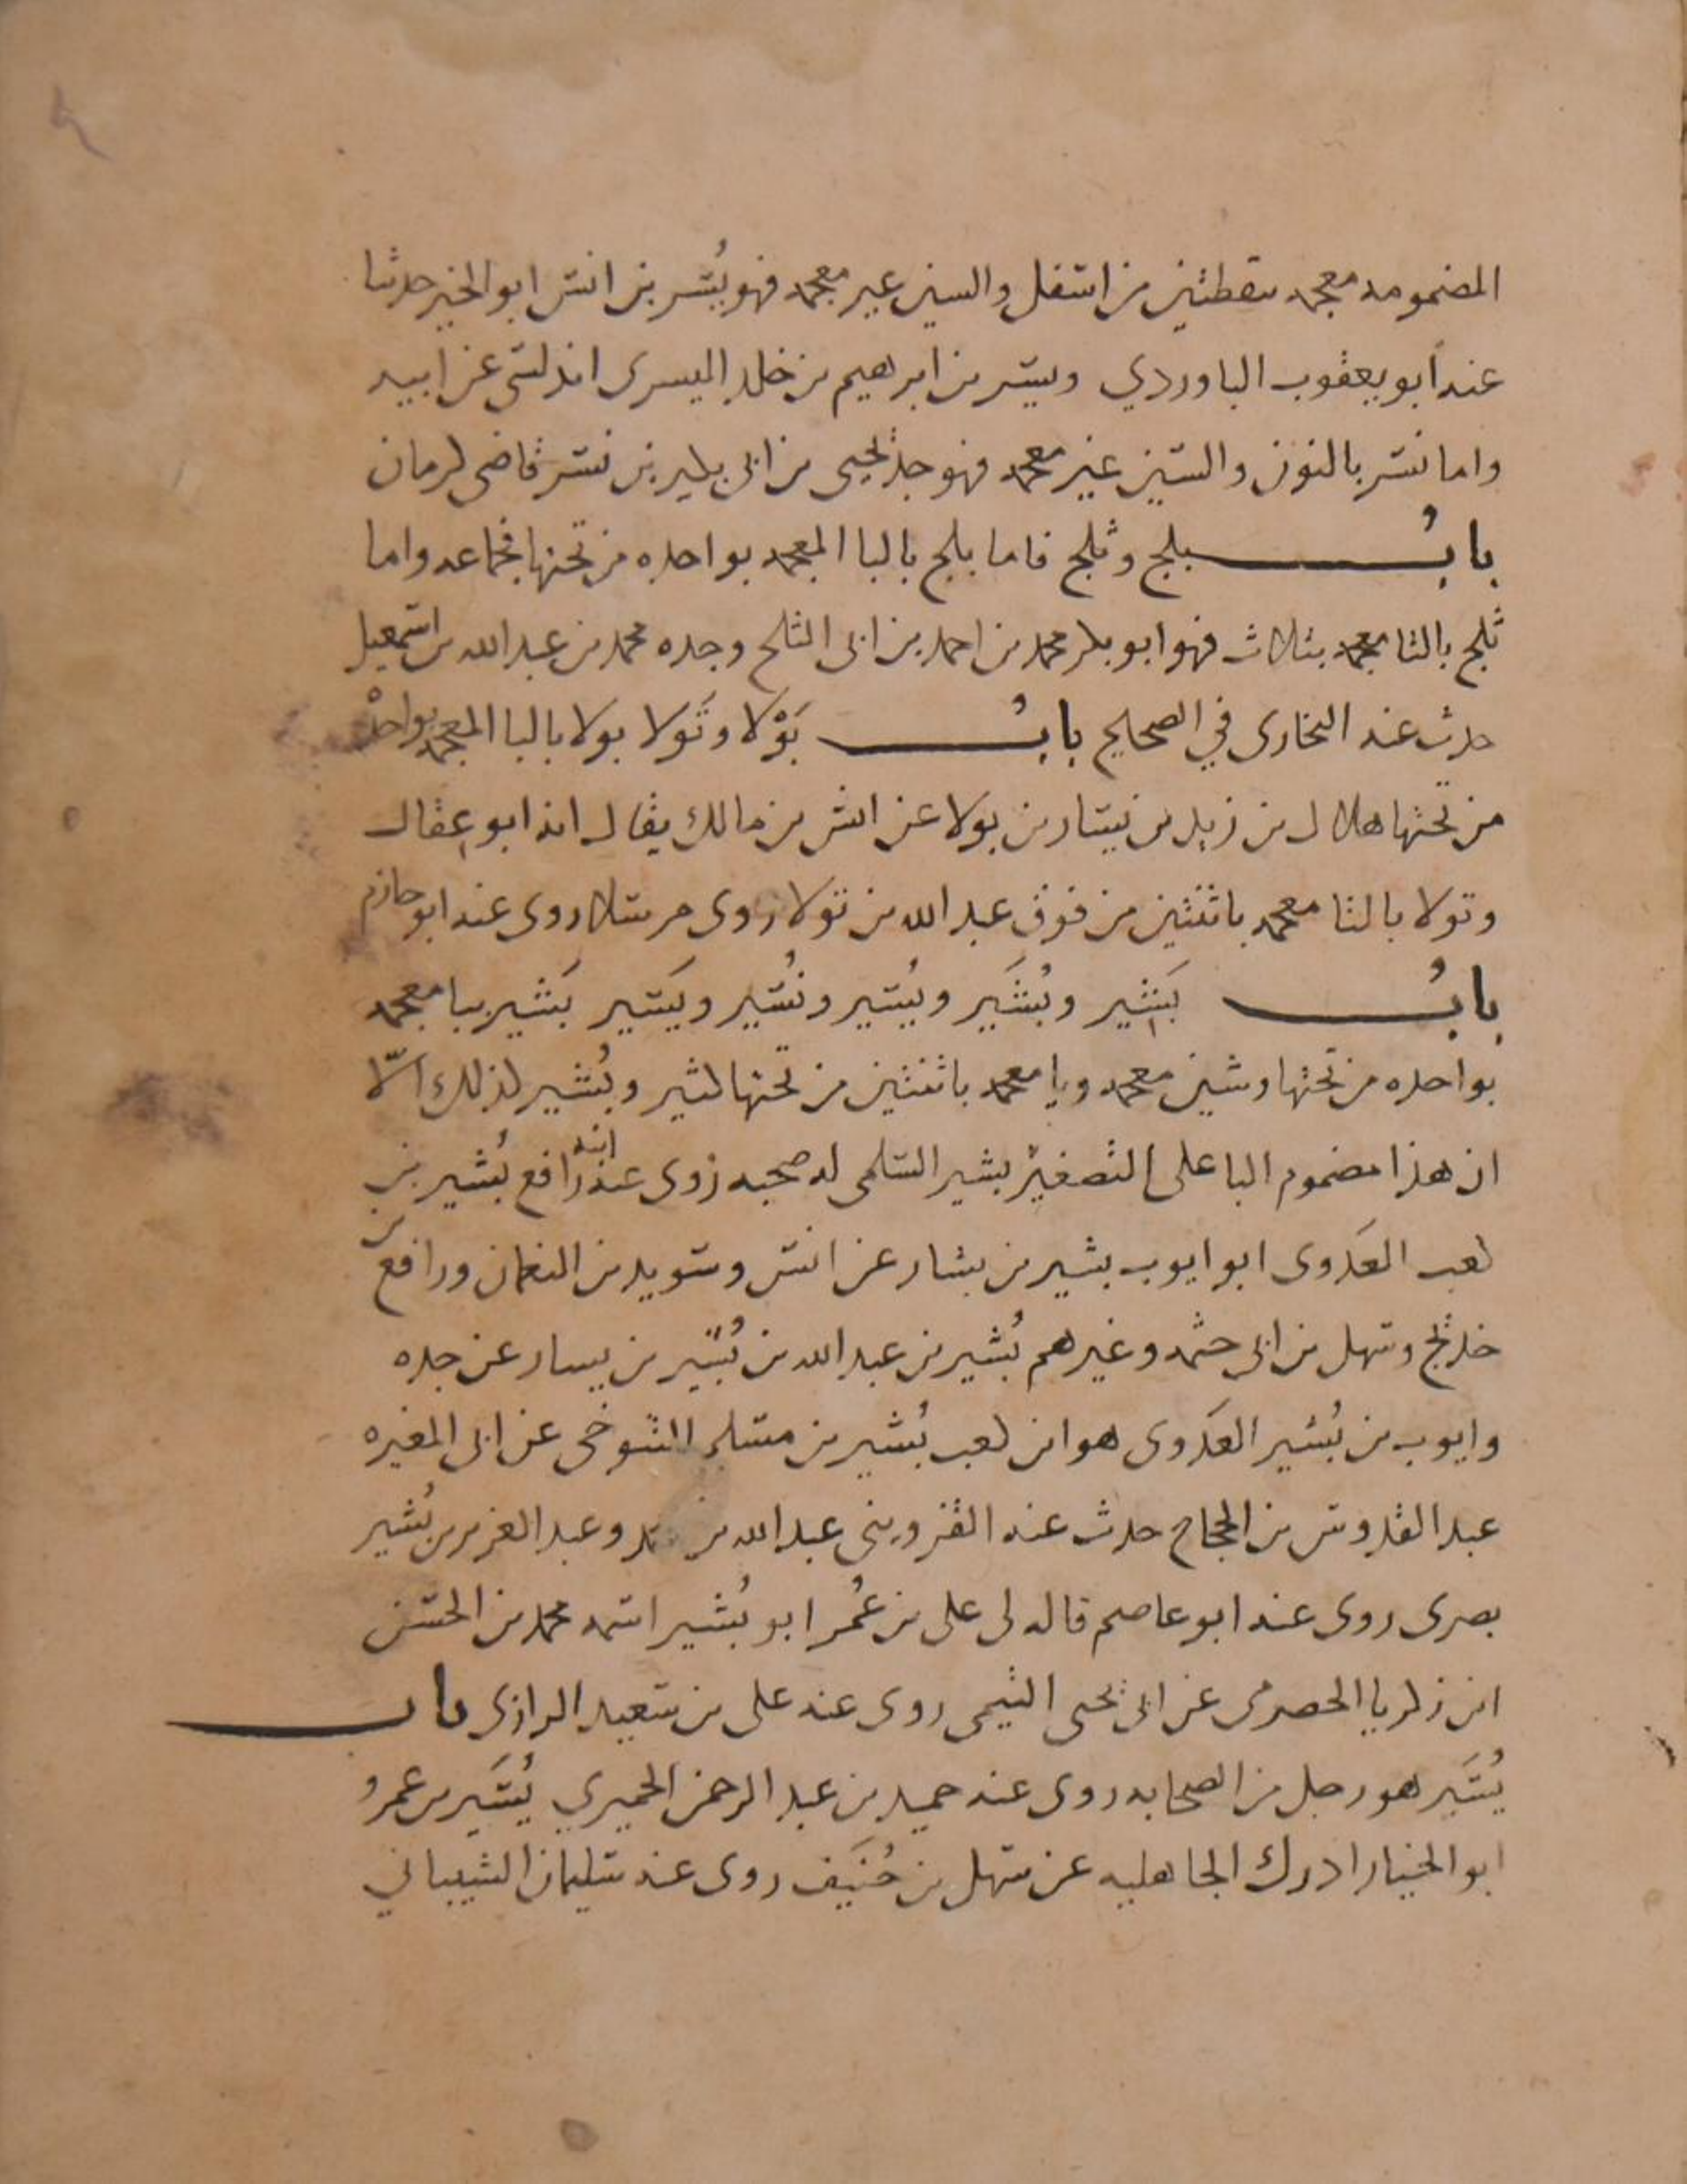 المضمومه معجمه بنقطتين من اسفل والسين غير معجمه فهو يُسر بن انس ابو الخير حدثنا
عنه ابو يعقوب الباوردي ويسر بن ابرهيم بن خلد اليسرى اندلسى عن ابيه
واما نسر بالنون والسين غير معجمه فهو جد يحيى بن ابى بكير بن نسر قاضى كرمان
بابُ بلج وثلج فاما بلج بالبا المعجمه بواحده من تحتها فجماعه واما
ثلج بالثا معجمه بثلاث فهو ابو بكر محمد بن احمد بن ابى الثلج وجده محمد بن عبد الله بن اسمعيل
حدث عنه البخارى في الصحيح بابُ بَوْلا وتَولا بولا بالبا المعجمه بواحدة
من تحتها هلال بن زيد بن يسار بن بولا عن انس بن مالك يقال انه ابو عِقال
وتولا بالتا معجمه باثنتين من فوق عبد الله بن تولا روى مرسلا روى عنه ابو حازم
بابُ بَشِير وبُشَير ويُسَير ونُسَير ويَسير بَشير ببا معجمه
بواحده من تحتها وشين معجمه ويا معجمه باثنتين من تحتها كثير وبُشير كذلك الّا
ان هذا مضموم البا على التصغير بشير السلمى له صحبه روى عنه ابنه رافع بُشير بن
كعب العَدَوى ابو ايوب بشير بن يسار عن انس وسويد بن النعمان ورافع بن
خديج وسهل بن ابى حثمه وغيرهم بُشير بن عبد الله بن بُشير بن يسار عن جده
وايوب بن بُشير العَدَوى هو ابن كعب بُشير بن مسلم التنوخى عن ابى المغيره
عبد القدوس بن الحجاج حدث عنه القزوينى عبد الله بن وعبد العزيز بن بُشير
بصرى روى عنه ابو عاصم قاله لى على بن عُمر ابو بُشير اسمه محمد بن الحسن
ابن زكريا الحضرمى عن ابى يحيى التيمى روى عنه على بن سعيد الرازى باب
يُسَير هو رجل من الصحابه روى عنه حميد بن عبد الرحمن الحميري يُسَير بن عمرو
ابو الخيار ادرك الجاهليه عن سهل بن حُنَيف روى عنه سليمان الشيباني